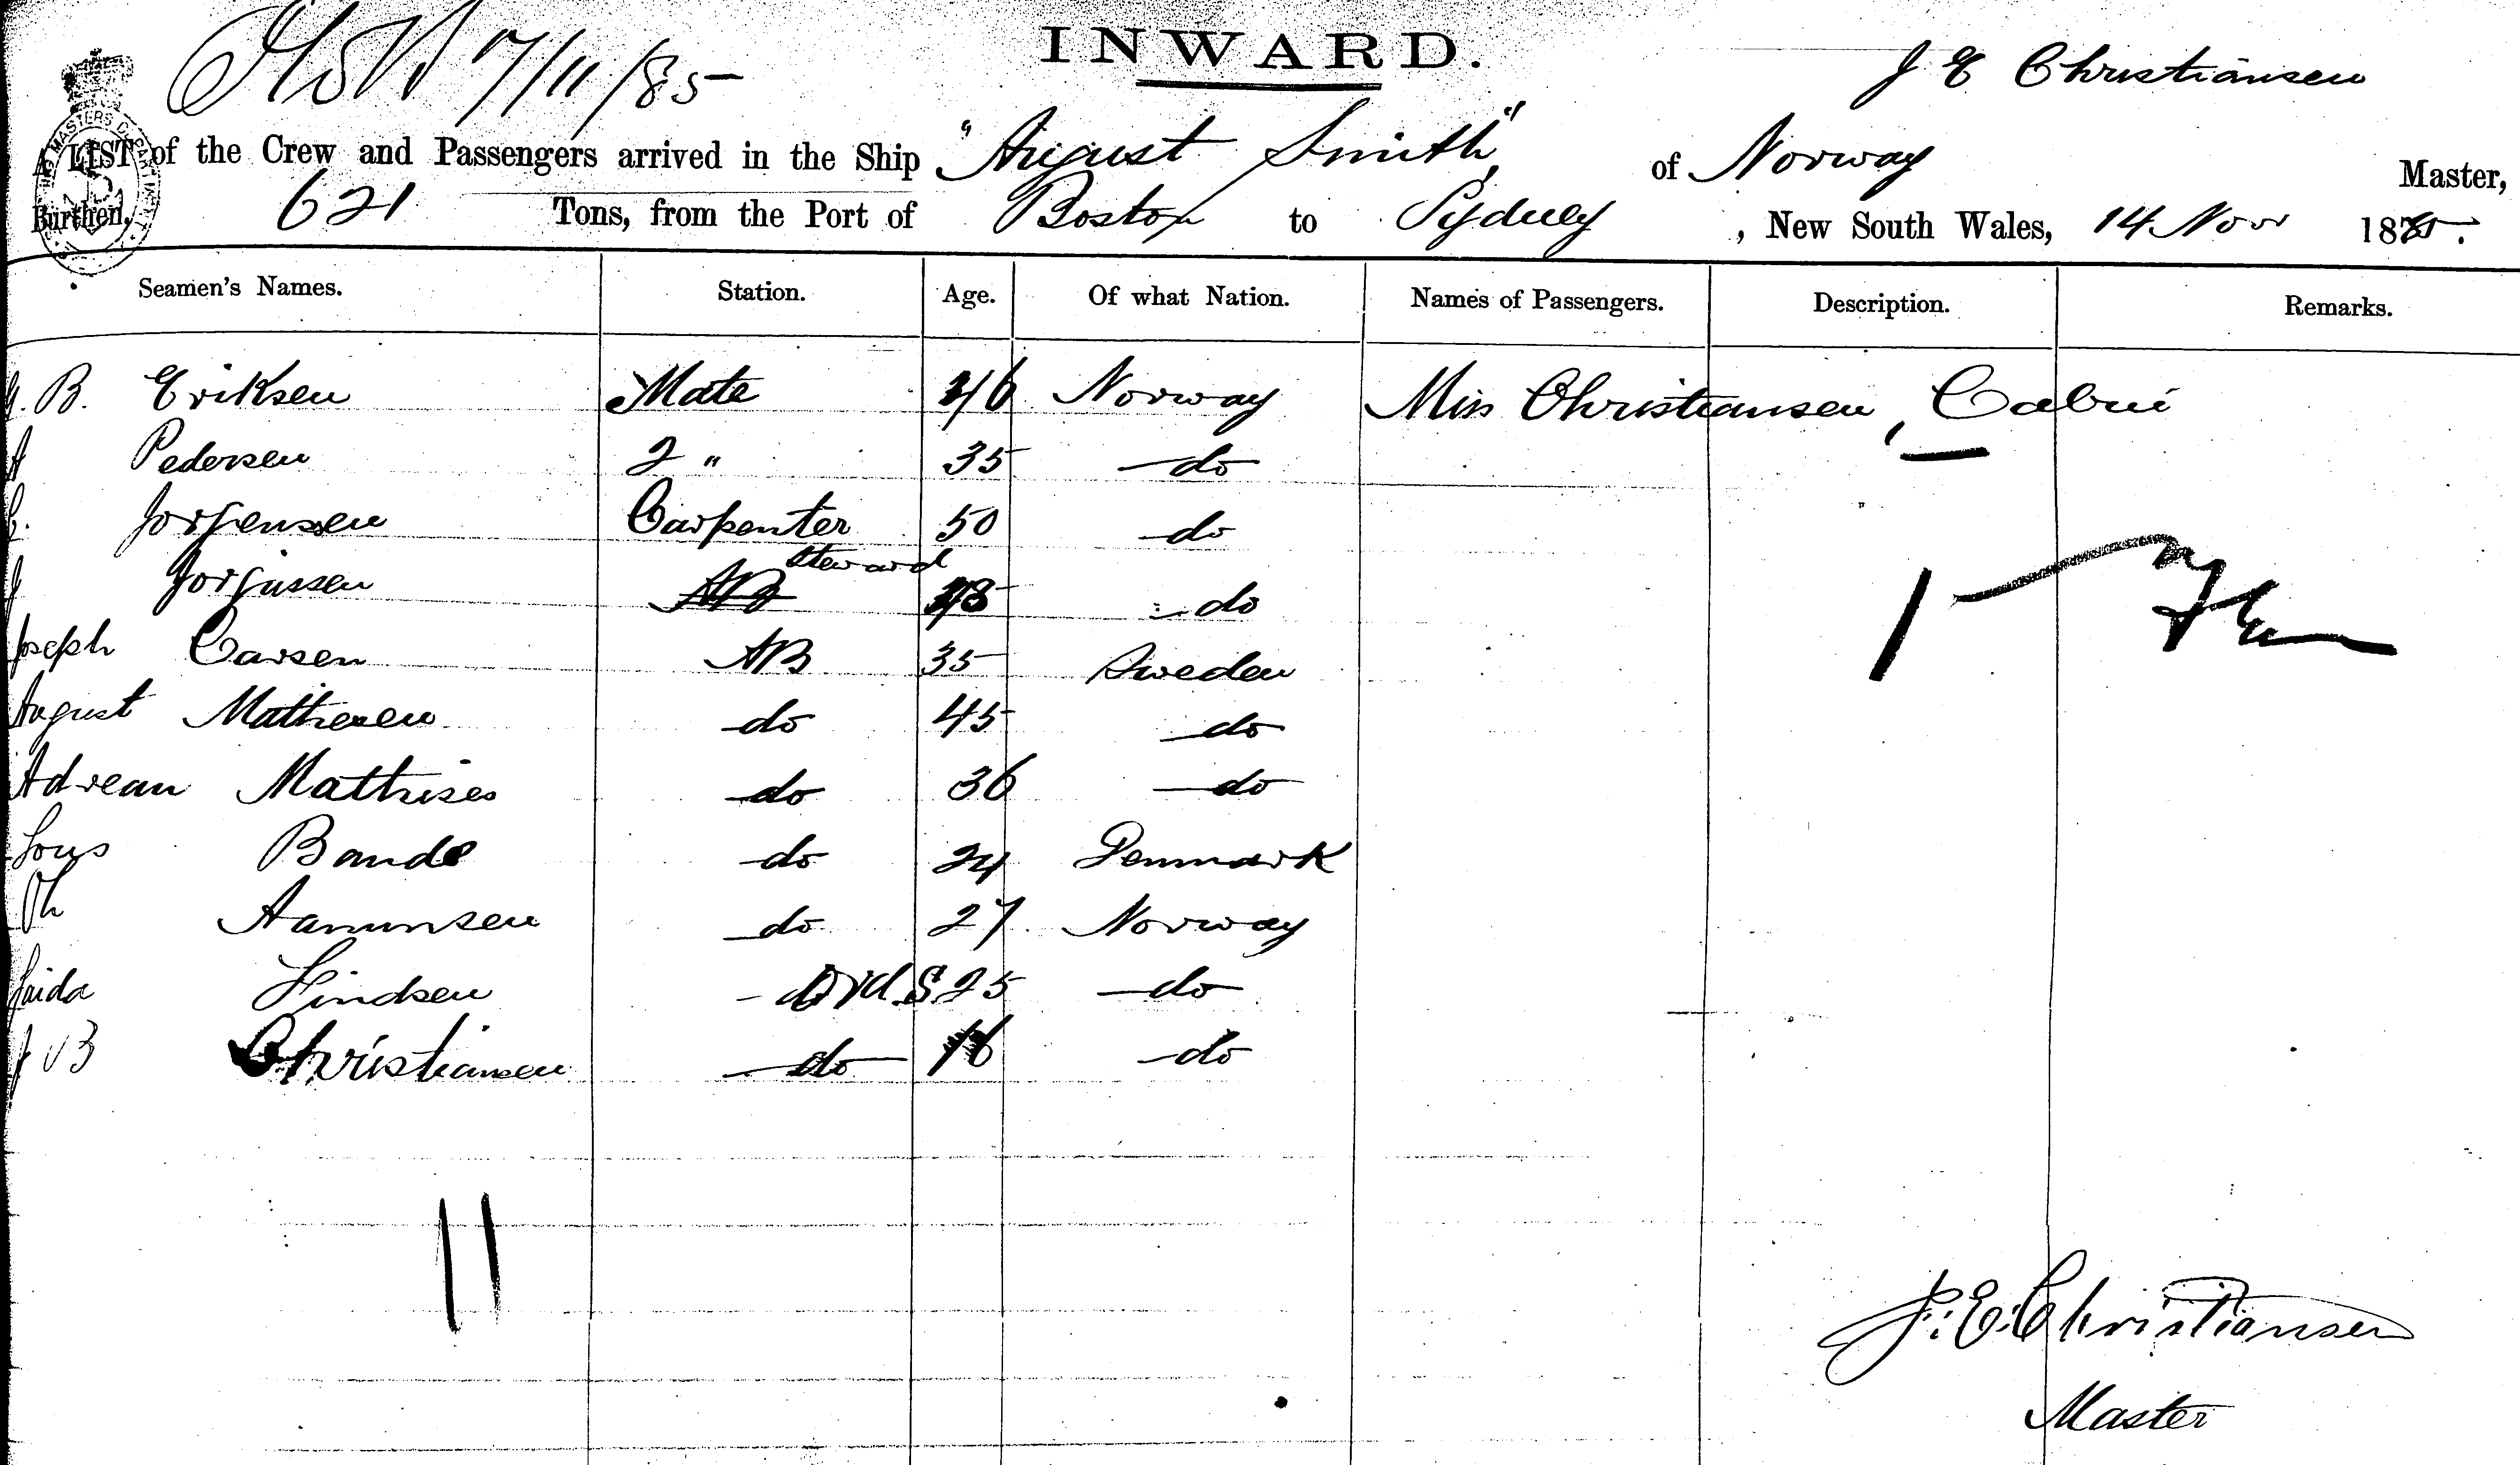 INWARD.
17/11/85
J E Christiansen
A LIST of the Crew and Passengers arrived in the Ship "August Smith" of Norway Master,
Burthen, 621 Tons, from the Port of Boston to Sydney, New South Wales, 14 Nov 1885.
Seamen's Names. Station. Age. Of what Nation. Names of Passengers. Description. Remarks.
B. Eriksen Mate 46 Norway Miss Christiansen, Cabin
A Pedersen 2 " 35 do
Jorgensen Carpenter 50 do
Steward
J Jorgussen AB do
Joseph Carsen AB 35 Sweden
August Mathesen do 45 do
Adrean Mathises do 36 do
Bande do 24 Denmark
Th Aamunsen do 27 Norway
Lindsen Ord S 25 do
B Christiansen do 16 do
11
J. E. Christiansen
Master